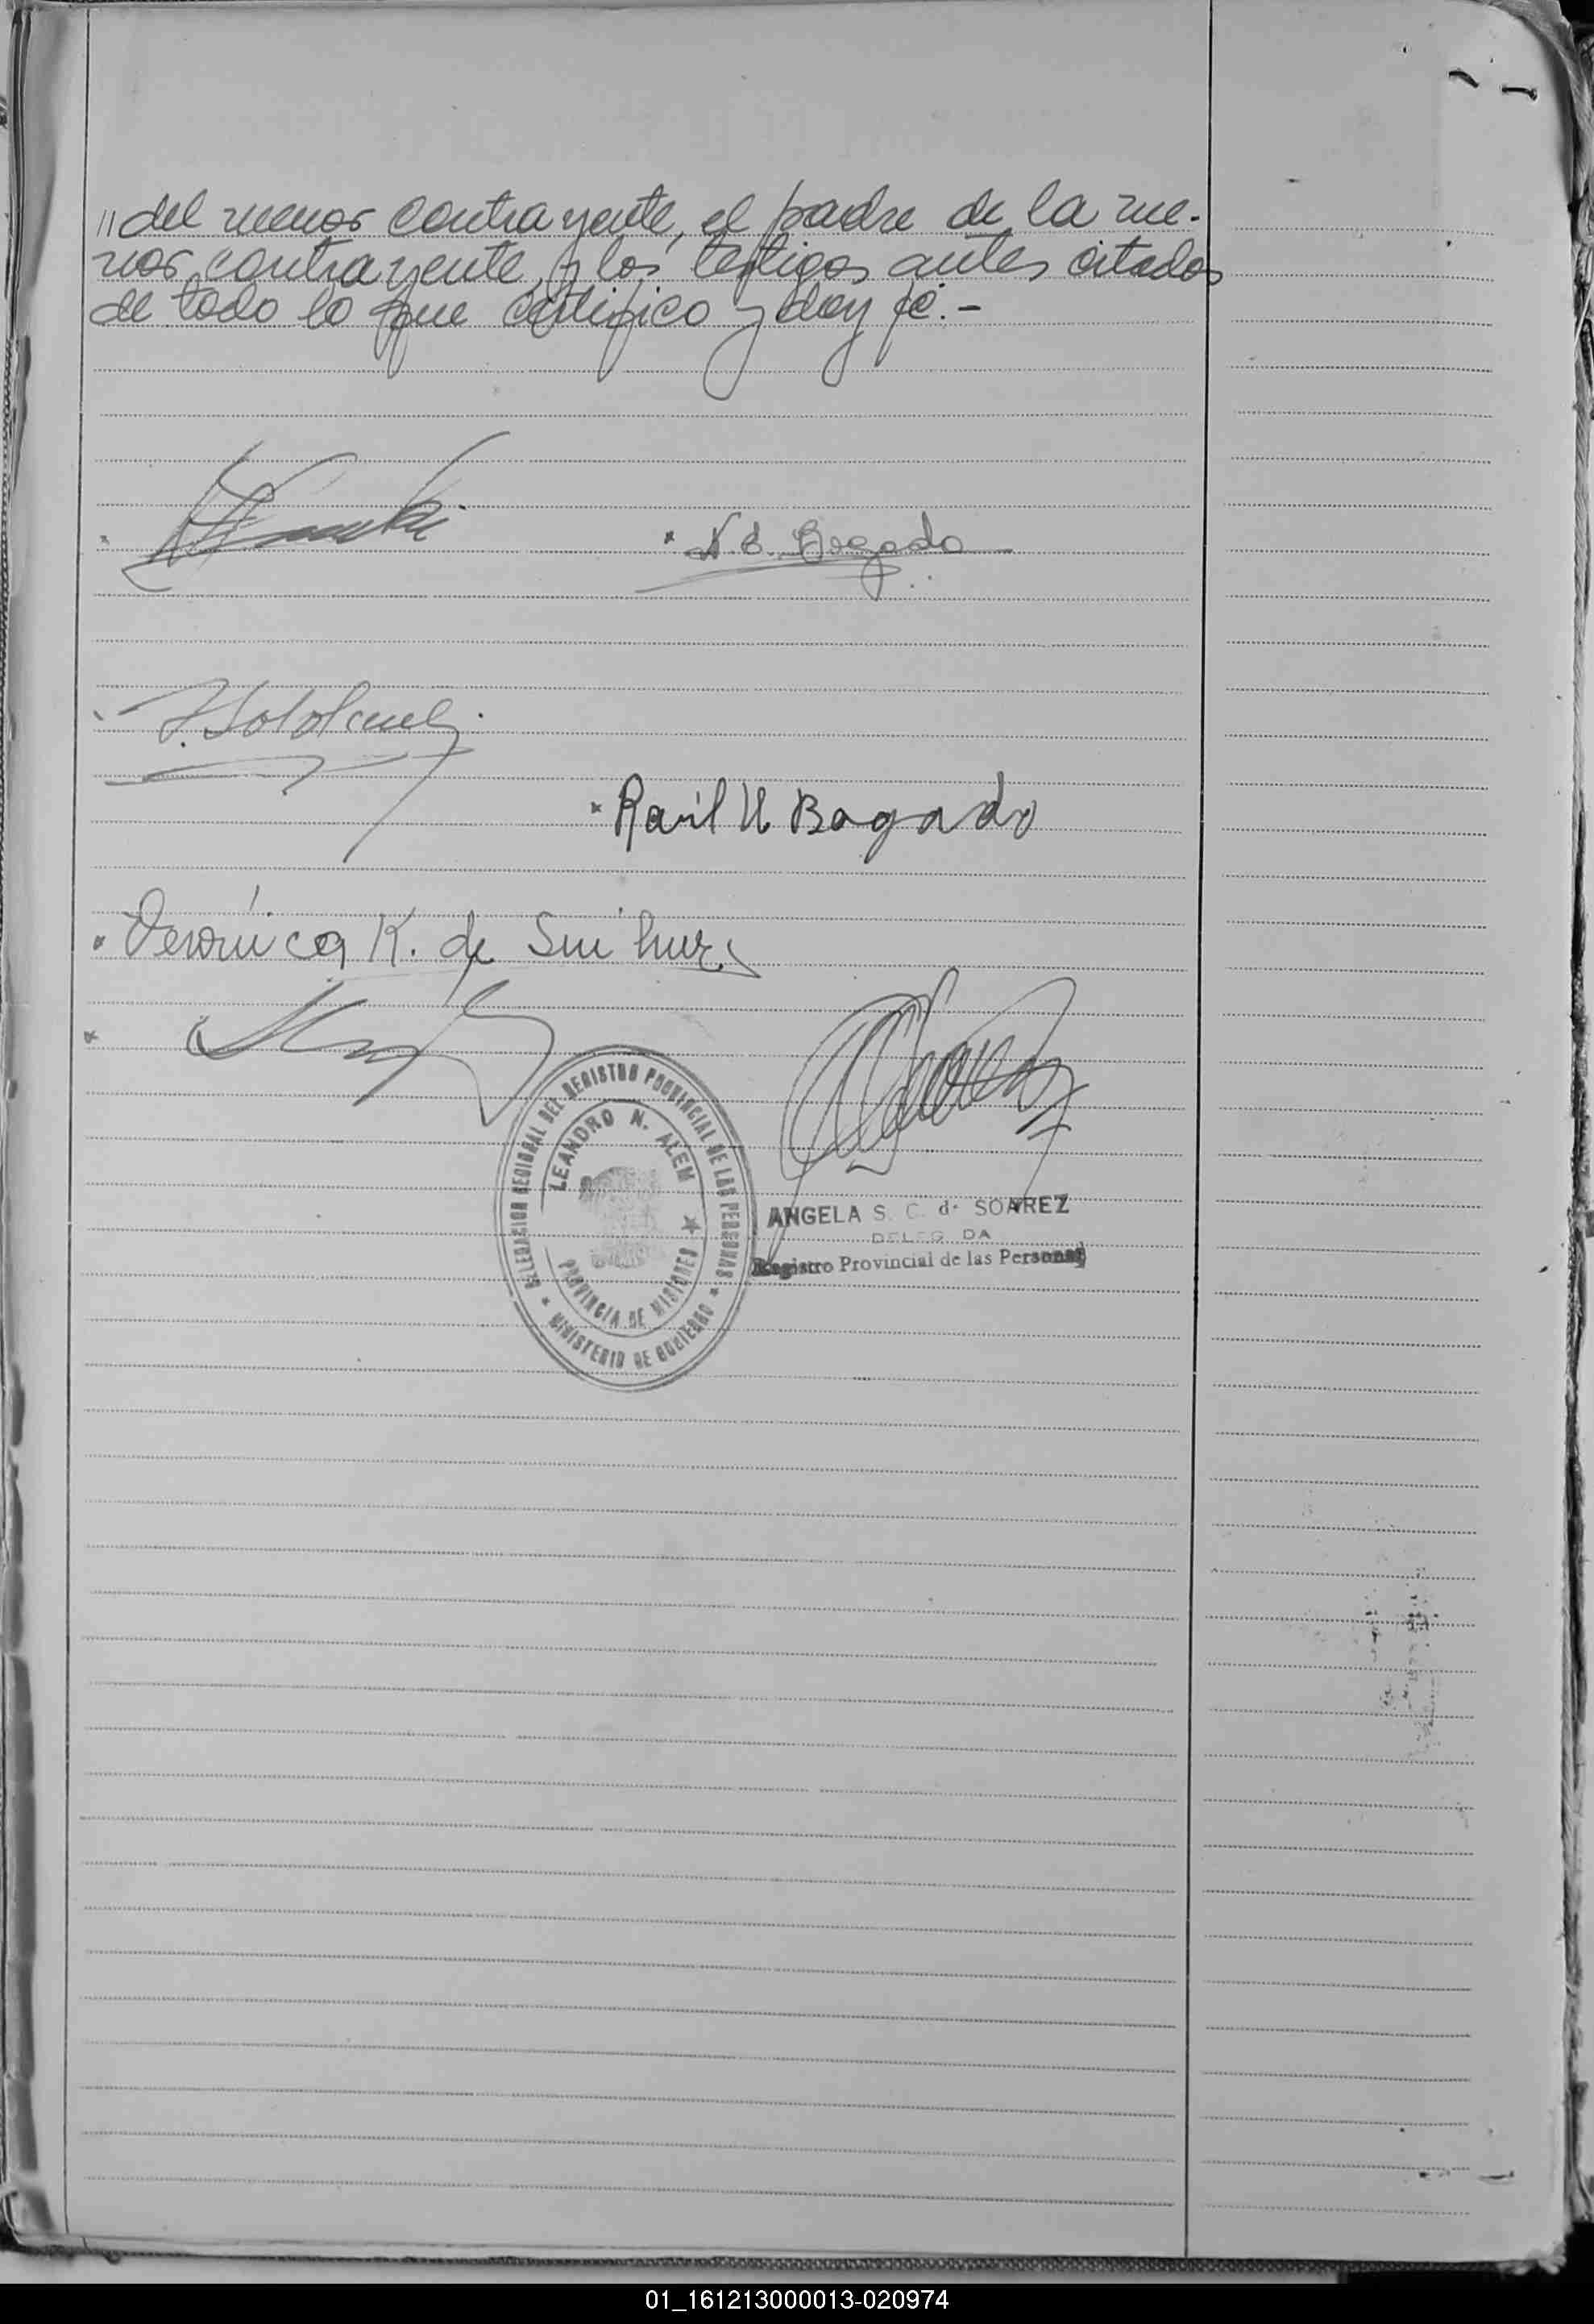 "del menor contrayente, el padre de la me-
nor contrayente, y los testigos antes citados
de todo lo que certifico y doy fé.-
N. B. Bogado
Raúl H Bogado
Verónica K. de
DELEGACION REGIONAL DEL REGISTRO PROVINCIAL DE LAS PERSONAS
LEANDRO N. ALEM
PROVINCIA DE MISIONES
* MINISTERIO DE GOBIERNO *
ANGELA S. C. de SOAREZ
DELEG DA
Registro Provincial de las Personas
01_161213000013-020974